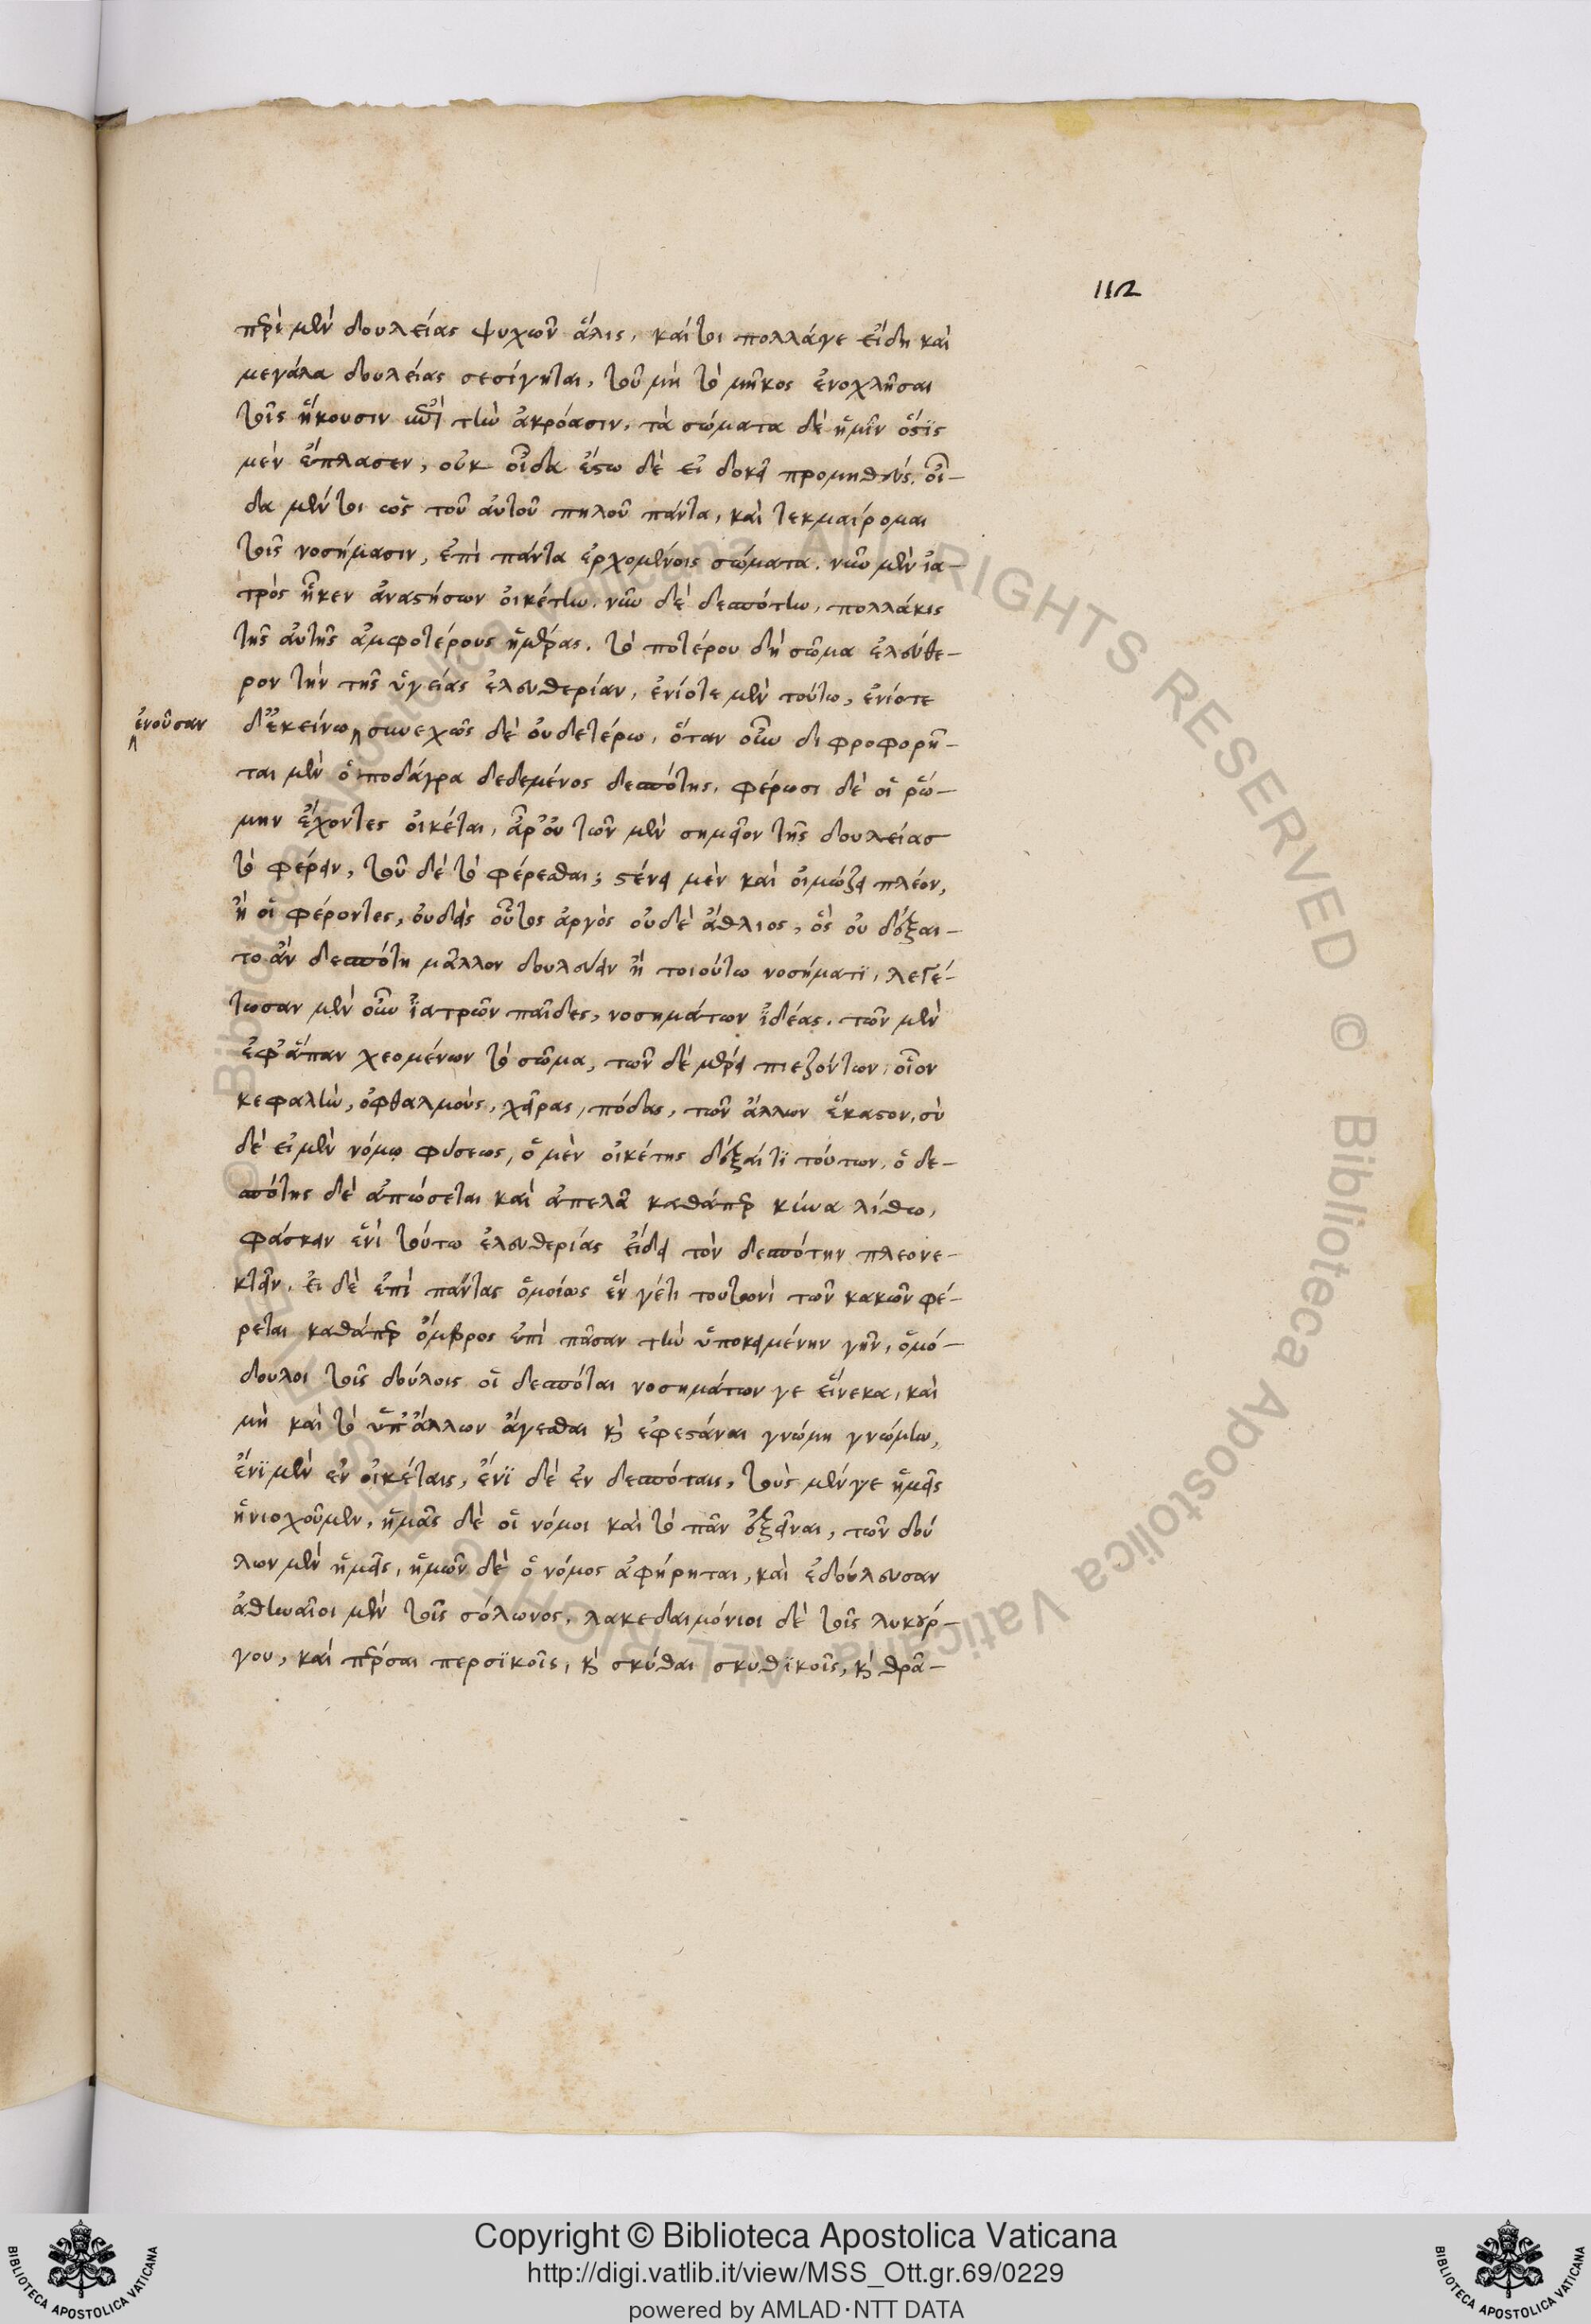 112
περὶ μὲν δουλείας ψυχῶν ἅλις, καίτοι πολλάγε εἴδη καὶ
μεγάλα δουλείας σεσίγηται, τοῦ μὴ τὸ μῆκος ἐνοχλῆσαι
τοῖς ἥκουσιν ἐπὶ τὴν ἀκρόασιν, τὰ σώματα δὲ ἡμῖν ὅστϊς
μὲν ἔπλασεν, οὐκ οἶδα ἔστω δὲ εἰ δοκεῖ προμηθεύς. οἶ-
δα μέντοι ὡς τοῦ αὐτοῦ πηλοῦ πάντα, καὶ τεκμαίρομαι
τοῖς νοσήμασιν, ἐπὶ πάντα ἐρχομένοις σώματα. νῦν μὲν ἰα-
τρὸς ἧκεν ἀναστήσων οἰκέτην. νῦν δὲ δεσπότην, πολλάκις
τῆς αὐτῆς ἀμφοτέρους ἡμέρας. τὸ ποτέρου δὴ σῶμα ἐλεύθε-
ρον τὴν τῆς ὑγείας ἐλευθερίαν, ἐνίοτε μὲν τούτω, ἐνίοτε
ἐνοῦσαν
δ᾽ἐκείνω συνεχῶς δὲ οὐδετέρω, ὅταν οὖν διφροφορῆ-
ται μὲν ὁ ποδάγρα δεδεμένος δεσπότης, φέρωσι δὲ οἱ ῥώ-
μην ἔχοντες οἰκέται, ἆρ᾽οὐ τῶν μὲν σημεῖον τῆς δουλείας
τὸ φέρειν, τοῦ δὲ τὸ φέρεσθαι; στένει μὲν καὶ οἰμώζει πλέον,
ἢ οἱ φέροντες, οὐδεὶς οὗτος ἀργὸς οὐδὲ ἄθλιος, ὃς οὐ δέξαι-
το ἂν δεσπότη μᾶλλον δουλεύειν ἢ τοιούτω νοσήματϊ, λεγέ-
τωσαν μὲν οὖν ἰατρῶν παῖδες, νοσημάτων ἰδέας. τῶν μὲν
ἐφ᾽ἅπαν χεομένων τὸ σῶμα, τῶν δὲ μέρει πιεζόντων, οἷον
κεφαλὴν, ὀφθαλμοὺς, χεῖρας, πόδας, τῶν ἄλλων ἕκαστον, σὺ
δὲ εἰ μὲν νόμῳ φύσεως, ὁ μὲν οἰκέτης δέξαίτϊ τούτων, ὁ δε-
σπότης δὲ ἀπώσεται καὶ ἀπελᾶ καθάπερ κύνα λίθω,
φάσκειν ἑνὶ τούτω ἐλευθερίας εἴδει τὸν δεσπότην πλεονε-
κτεῖν. εἰ δὲ ἐπὶ πάντας ὁμοίως ἕν γέτι τουτονὶ τῶν κακῶν φέ-
ρεται καθάπερ ὄμβρος ἐπὶ πᾶσαν τὴν ὑποκειμένην γῆν, ὁμό-
δουλοι τοῖς δούλοις οἱ δεσπόται νοσημάτων γε εἵνεκα, καὶ
μὴ καὶ τὸ ὑπ᾽ἄλλων ἄγεσθαι καὶ ἐφεστάναι γνώμη γνώμην,
ἔνϊ μὲν ἐν οἰκέταις, ἔνϊ δὲ ἐν δεσπόταις, τοὺς μέν γε ἡμεῖς
ἡνιοχοῦμεν, ἡμᾶς δὲ οἱ νόμοι καὶ τὸ πᾶν ἐξεῖναι, τῶν δού
λων μὲν ἡμεῖς, ἡμῶν δὲ ὁ νόμος ἀφήρηται, καὶ ἐδούλευσαν
ἀθηναῖοι μὲν τοῖς σόλωνος, λακεδαιμόνιοι δὲ τοῖς λυκούρ-
γου, καὶ πέρσαι περσϊκοῖς, καὶ σκύθαι σκυθϊκοῖς, καὶ θρᾶ-
Copyright © Biblioteca Apostolica Vaticana
http://digi.vatlib.it/view/MSS_Ott.gr.69/0229
powered by AMLAD·NTT DATA